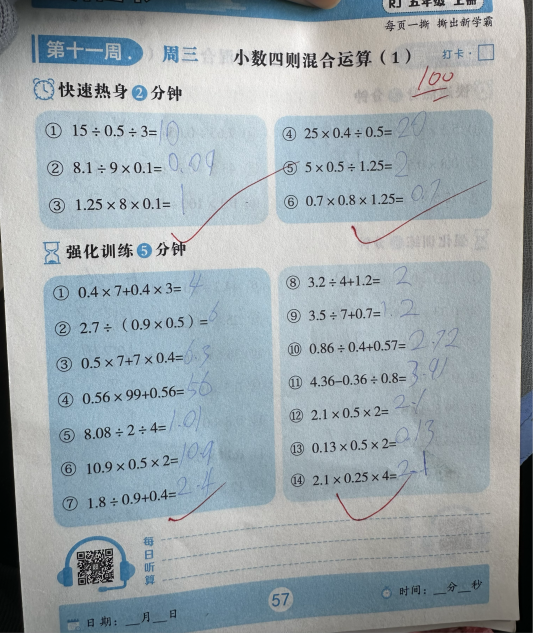 RJ 五年级 上册
每页一撕 撕出新学霸
第十一周 . 周三 小数四则混合运算（1） 打卡·
100
快速热身2分钟
① 15÷0.5÷3=10
② 8.1÷9×0.1=0.09
③ 1.25×8×0.1=1
④ 25×0.4÷0.5=20
⑤ 5×0.5÷1.25=2
⑥ 0.7×0.8×1.25=0.7
强化训练5分钟
① 0.4×7+0.4×3=4
② 2.7÷（0.9×0.5）=6
③ 0.5×7+7×0.4=6.3
④ 0.56×99+0.56=56
⑤ 8.08÷2÷4=1.01
⑥ 10.9×0.5×2=10.9
⑦ 1.8÷0.9+0.4=2.4
⑧ 3.2÷4+1.2=2
⑨ 3.5÷7+0.7=1.2
⑩ 0.86÷0.4+0.57=2.72
⑪ 4.36-0.36÷0.8=3.91
⑫ 2.1×0.5×2=2.1
⑬ 0.13×0.5×2=0.13
⑭ 2.1×0.25×4=2.1
每日听算
57
日期：__月__日
时间：__分__秒